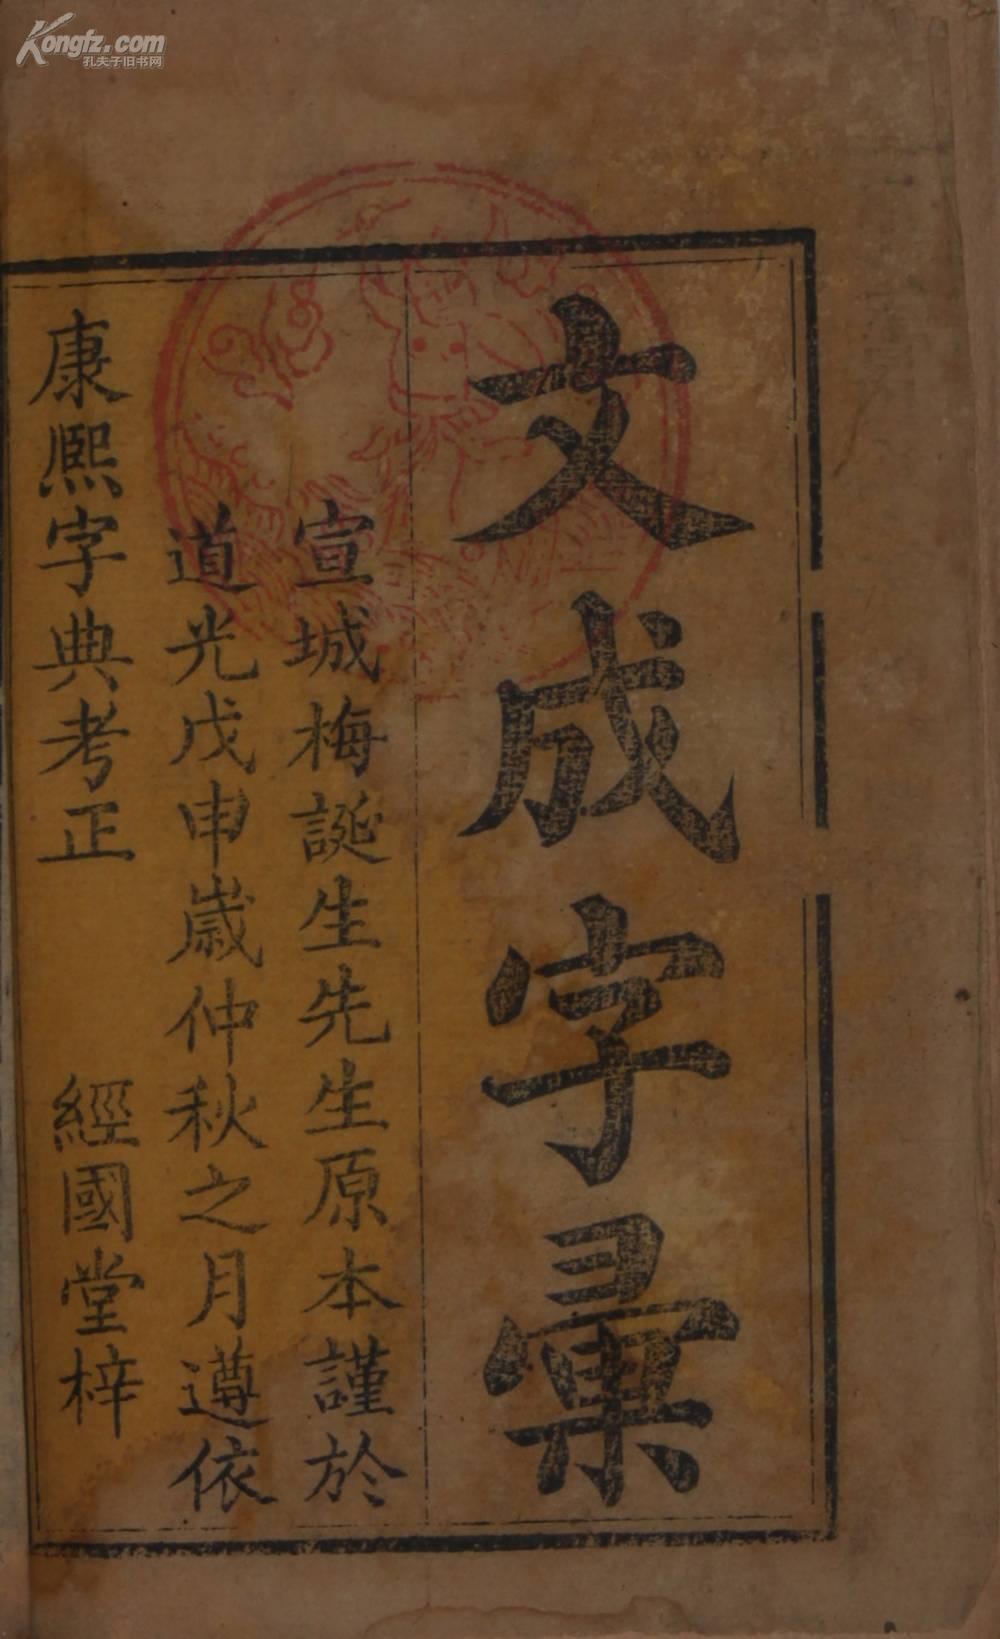 文成字彙
宣城梅誕生先生原本謹於
道光戊申嵗仲秋之月遵依
康熙字典考正 經國堂梓
Kongfz.com
孔夫子旧书网